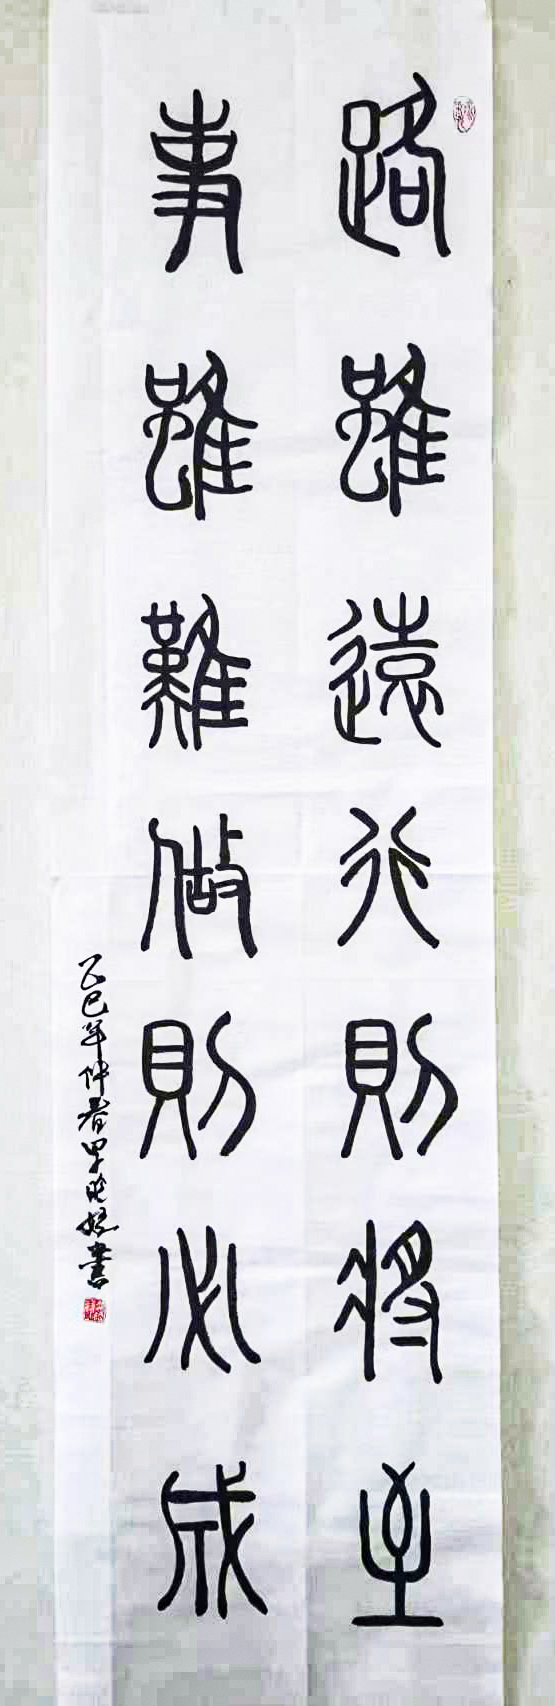 路雖遠行則將至
事雖難做則必成
乙巳年仲春
書